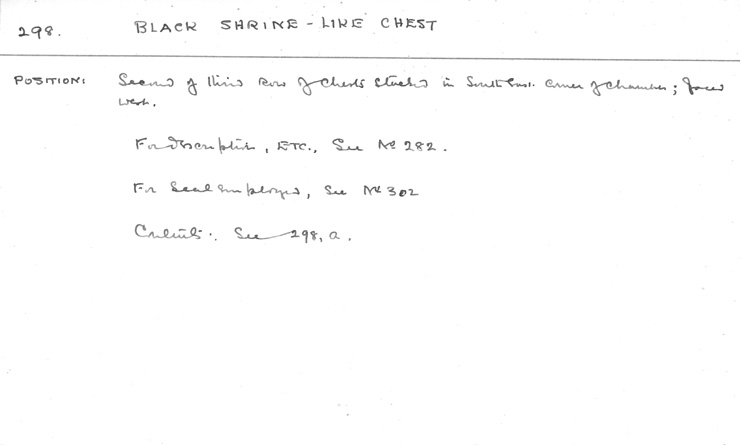 298. BLACK SHRINE-LIKE CHEST
POSITION: Second of third row of chests stacked in South East. corner of chamber; faces
west.
For description, ETC., See Nº 282.
For Seal employed, see Nº 302
Contents:. See 298, a.